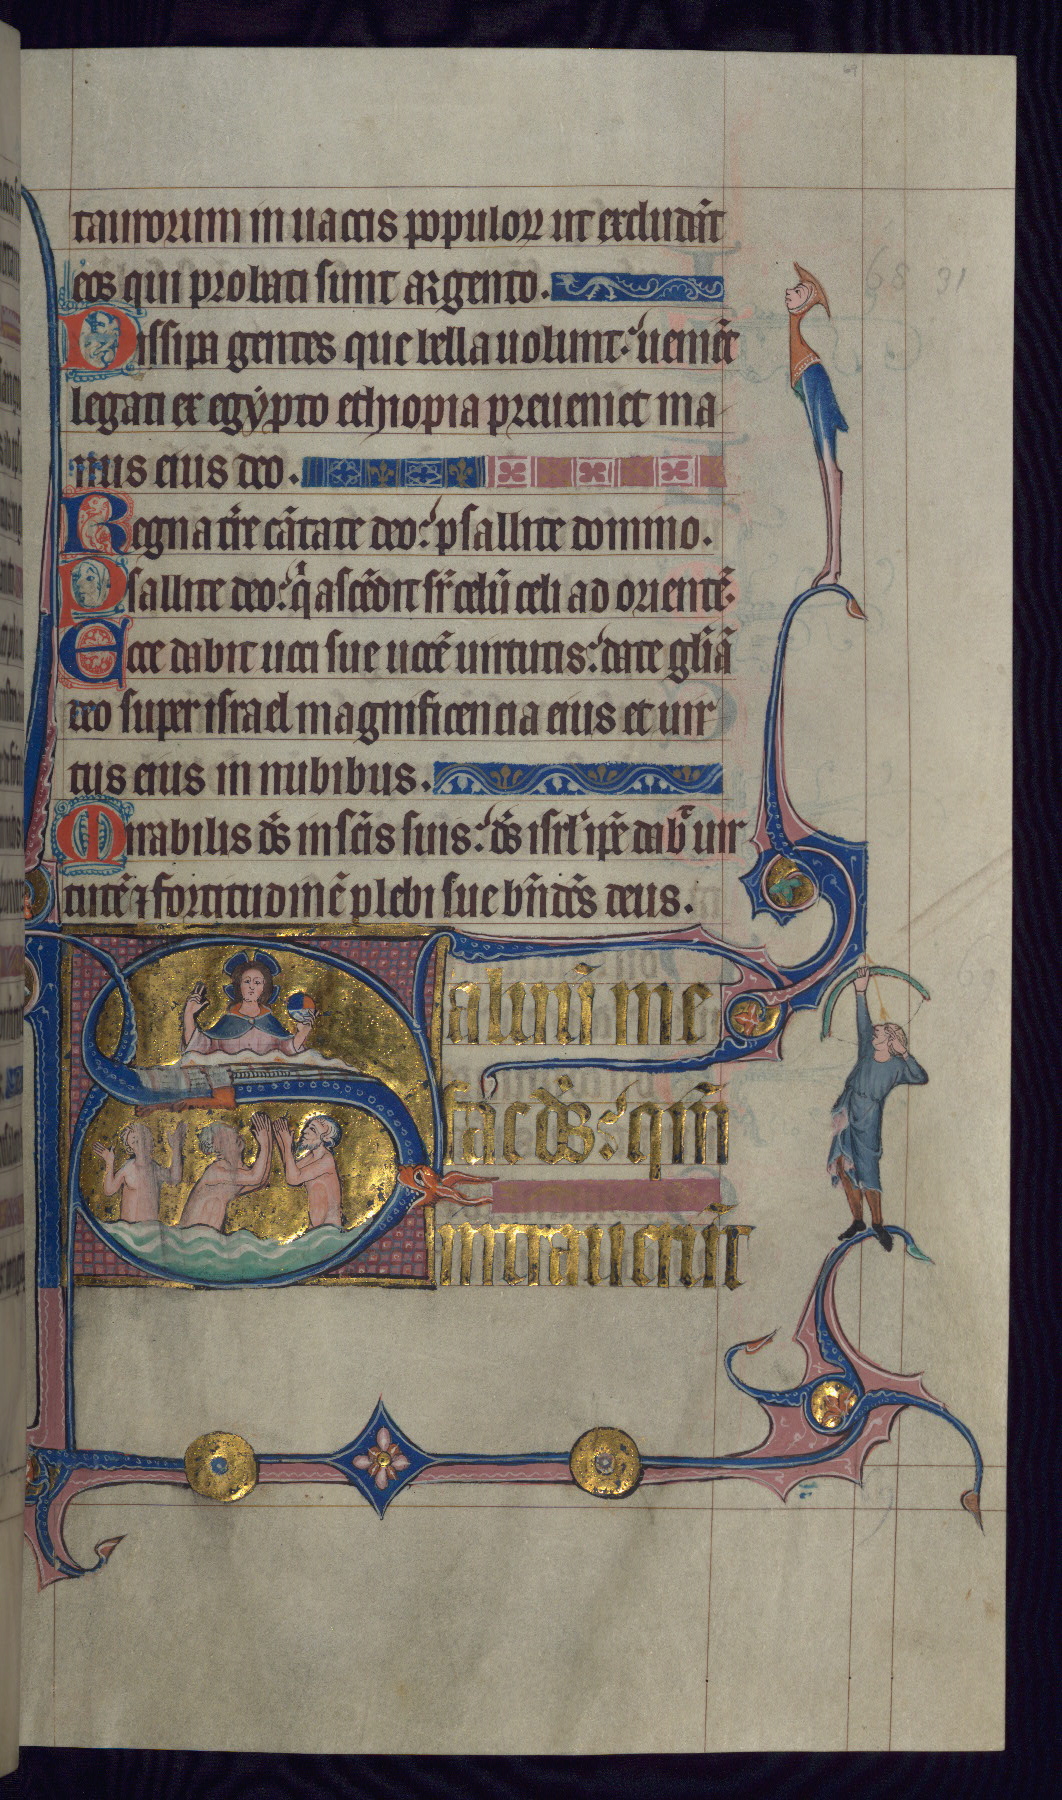 taurorum in uaccis populoꝝ ut excludāt
eos qui probati sunt argento.
Dissipa gentes que bella uolunt: uenient
legati ex egypto ethiopia preueniet ma
nus eius deo.
Regna tr̄e cātate deo: psallite domino.
Psallite deo: q̄ ascēdit sr̄ celū celi ad orientē.
Ecce dabit uoci sue uocē uirtutis: date glīā
deo super israel magnificencia eius et uir
tus eius in nubibus.
Mirabilis d̄s in sc̄is suis: d̄s isrl̄ ip̄e dab̄ uir
tutē ⁊ fortitudinē plebi sue bn̄dc̄s deus.
Saluū me
fac d̄s: qm̄
intrauerūt
68 31